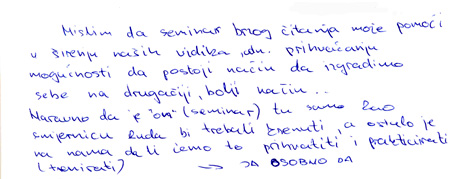 Mislim da seminar brzog čitanja može pomoći
u širenju naših vidika, odn. prihvaćanju
mogućnosti da postoji način da izgradimo
sebe na drugačiji, bolji način..
Naravno da je "on" (seminar) tu samo kao
smjernicu kuda bi trebali krenuti, a ostalo je
na nama da li ćemo to prihvatiti i prakticirati
(trenirati) → JA OSOBNO DA